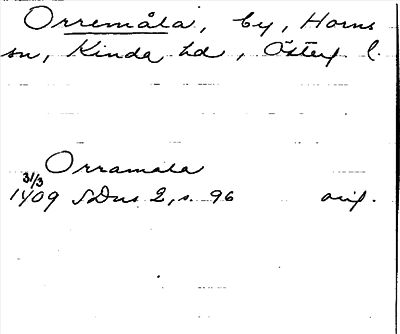 Orremåla, by, Horns
sn, Kinda hd, Österg. l.
Orramala
31/3
1409 SDns 2, s. 96 orig.